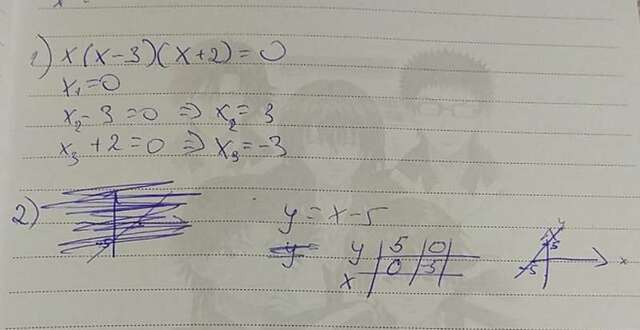 1) x(x-3)(x+2)=0
x₁=0
x₂-3=0 ⇒ x₂=3
x₃+2=0 ⇒ x₃=-3
2) y=x-5
y | 5 | 0 |
x | 0 | 5 |
y
5
-5
x